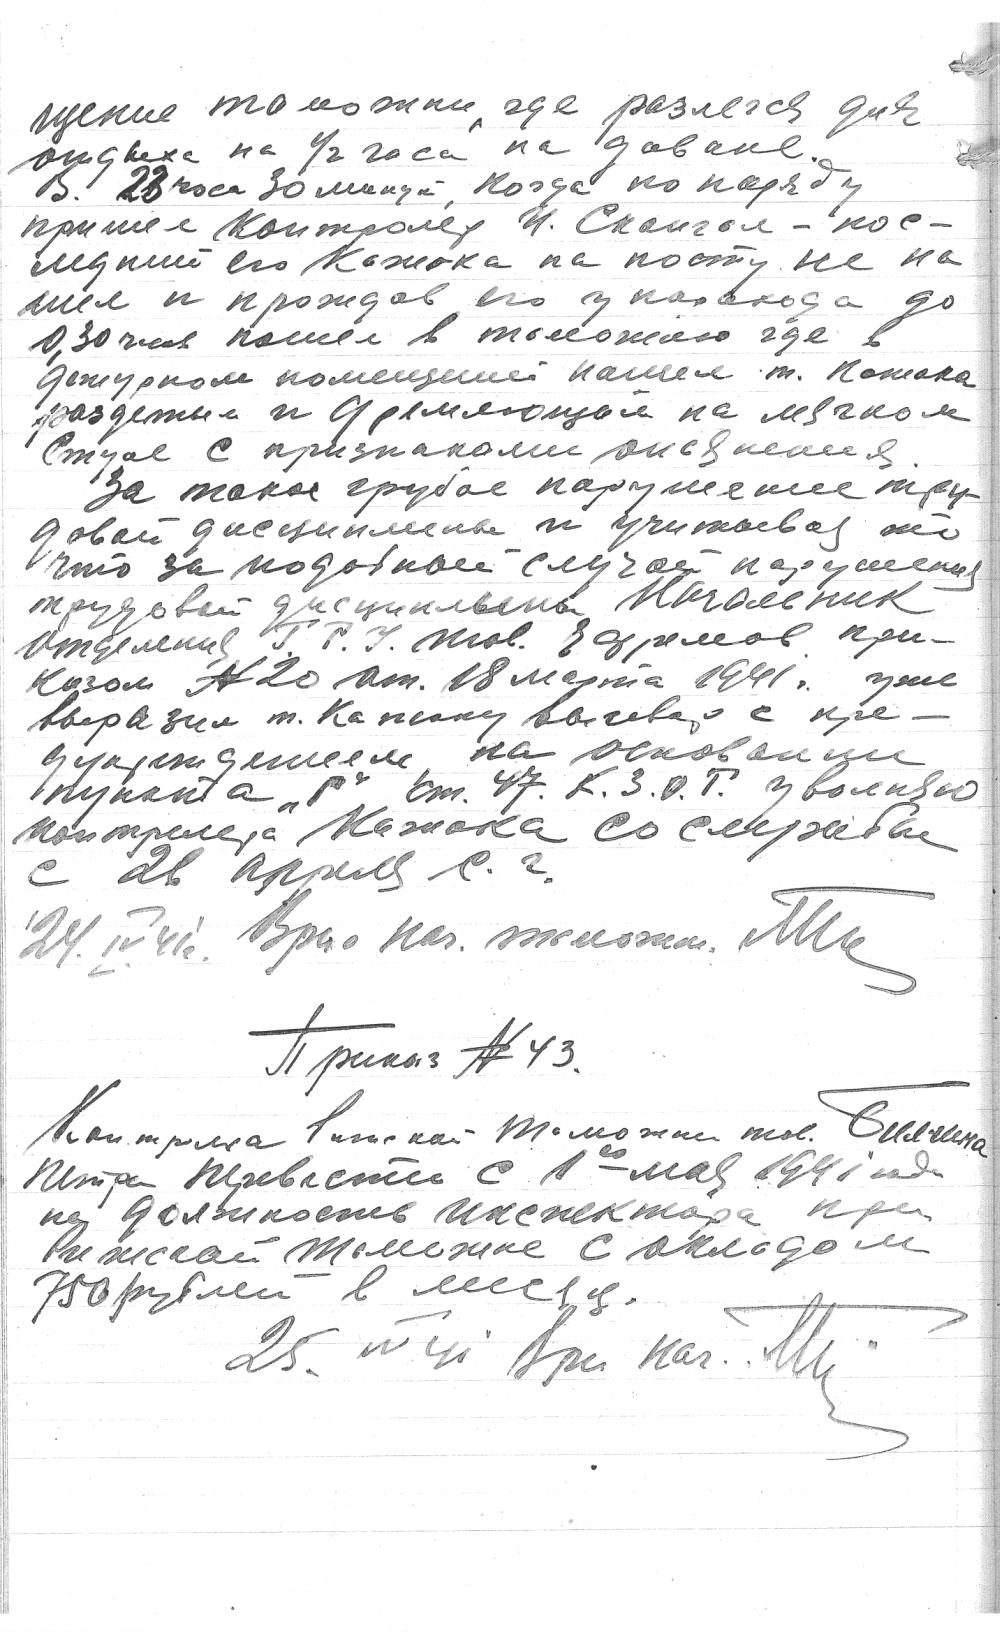 щение таможни, где разлегся для
отдыха на 1/2 часа на диване.
В. 23 часа 30 минут, когда по наряду
пришел контролер И. – пос-
ледний его Кажока на посту не на
шел и прождав его у парохода до
0,30 час пошел в таможню где в
дежурном помещении нашел т. Кажока
раздетым и дремлющим на мягком
стуле с признаками опьянения.
За такое грубое нарушение тру-
довой дисциплины и учитывая то
что за подобный случай нарушения
трудовой дисциплины Начальник
отделения Г. Р. У. тов. Ефремов при-
казом №20 от. 18 марта 1941г. уже
выразил т. Кажоку выговор с пре-
дупреждением, на основании
пункта „Г" ст. 47. К.З.О.Т. увольняю
контролера Кажока со службы
с 26 апреля с. г.
24. IV 41г. Врио нач. таможн.
Приказ № 43.
Контролера Рижской таможни тов.
Петра перевести с 1го мая 1941 года
на должность инспектора при
Рижской таможне с окладом
750 рублей в месяц.
25. IV 41 Ври. нач.